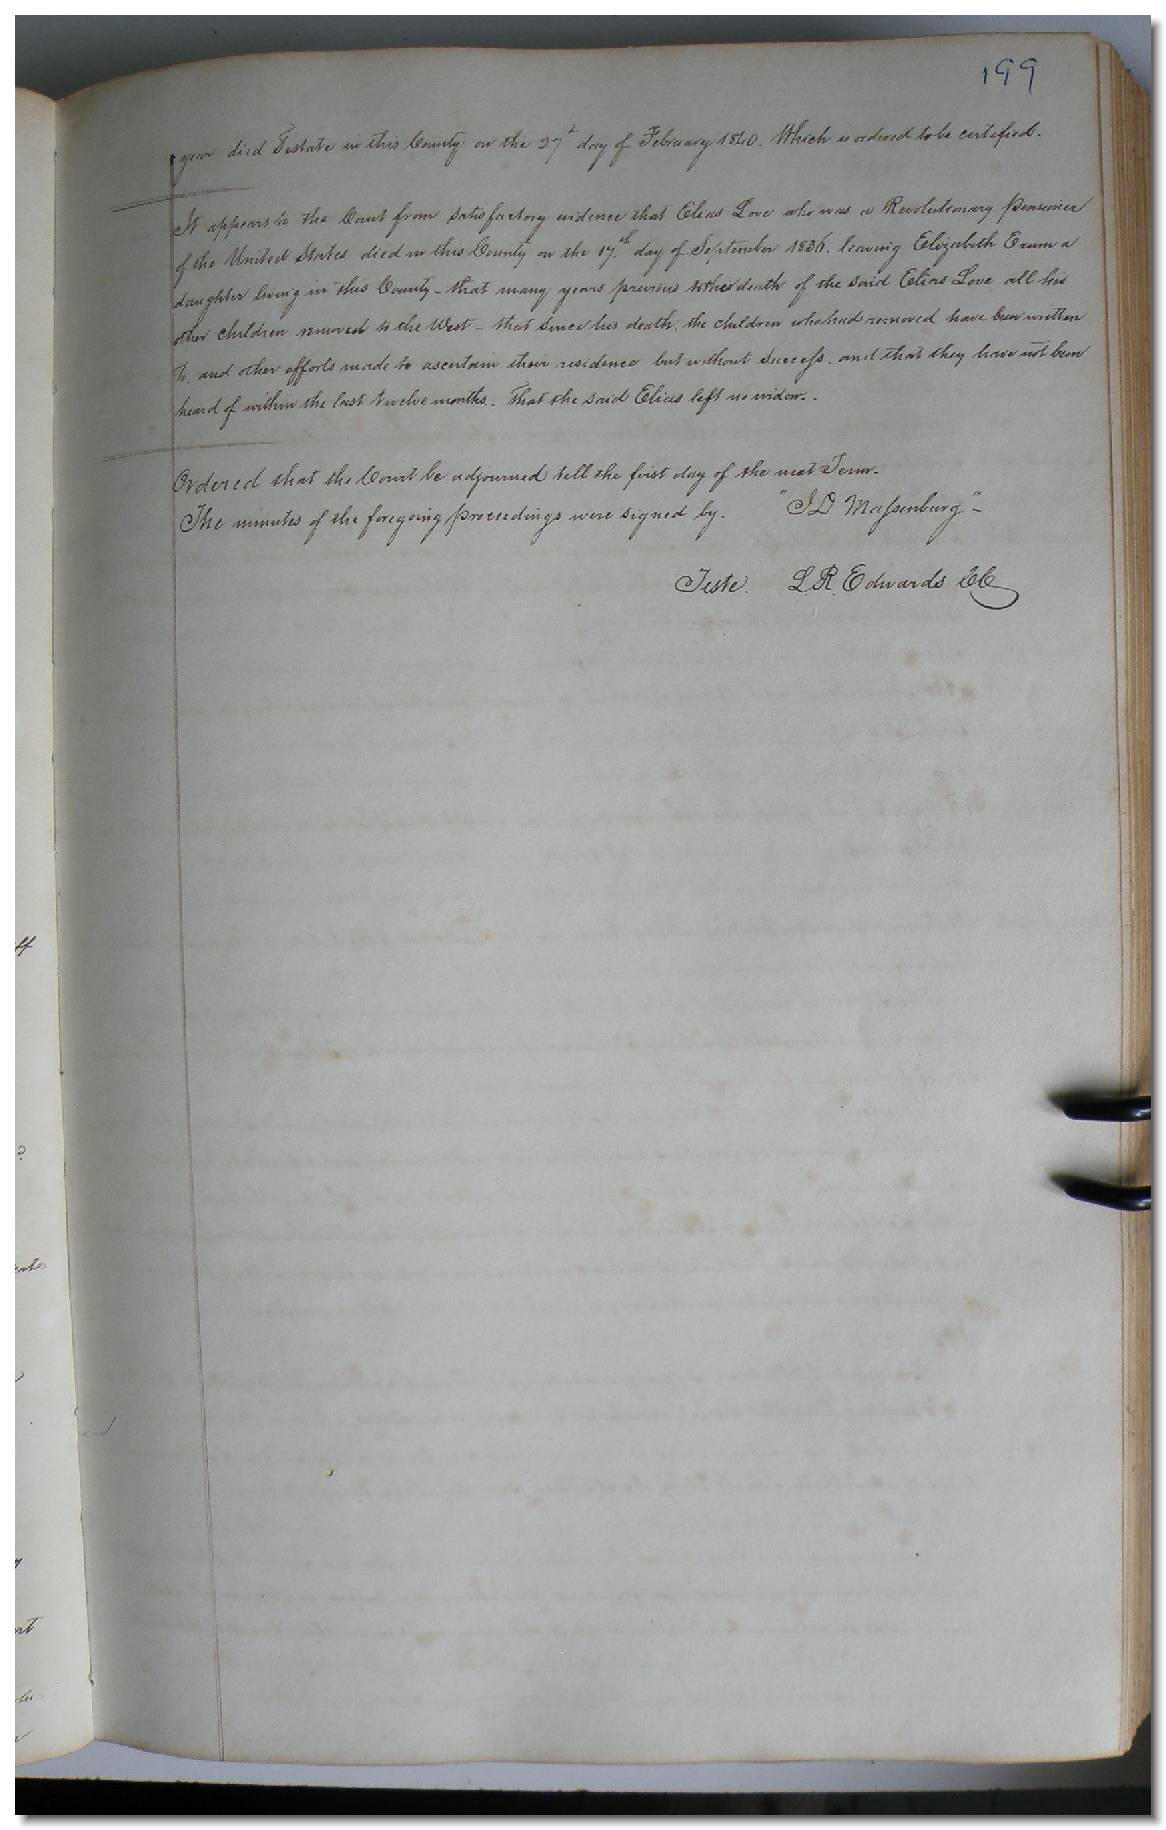 199
year died Testate in this County on the 27th day of February 1840. Which is ordered to be certified.
It appears to the Court from satisfactory evidence that Elias Love who was a Revolutionary pensioner
of the United States died in this County on the 17.th day of September 1836. leaving Elizabeth Exum a
daughter living in this County - that many years previous to the death of the said Elias Love all his
other children removed to the West - that since his death, the children who had removed have been written
to, and other efforts made to ascertain their residence but without success, and that they have not been
heard of within the last twelve months. That the said Elias left no widow.
Ordered that the Court be adjourned till the first day of the next Term.
The minutes of the foregoing proceedings were signed by. "J D Massenburg"
Teste. L. R. Edwards CC